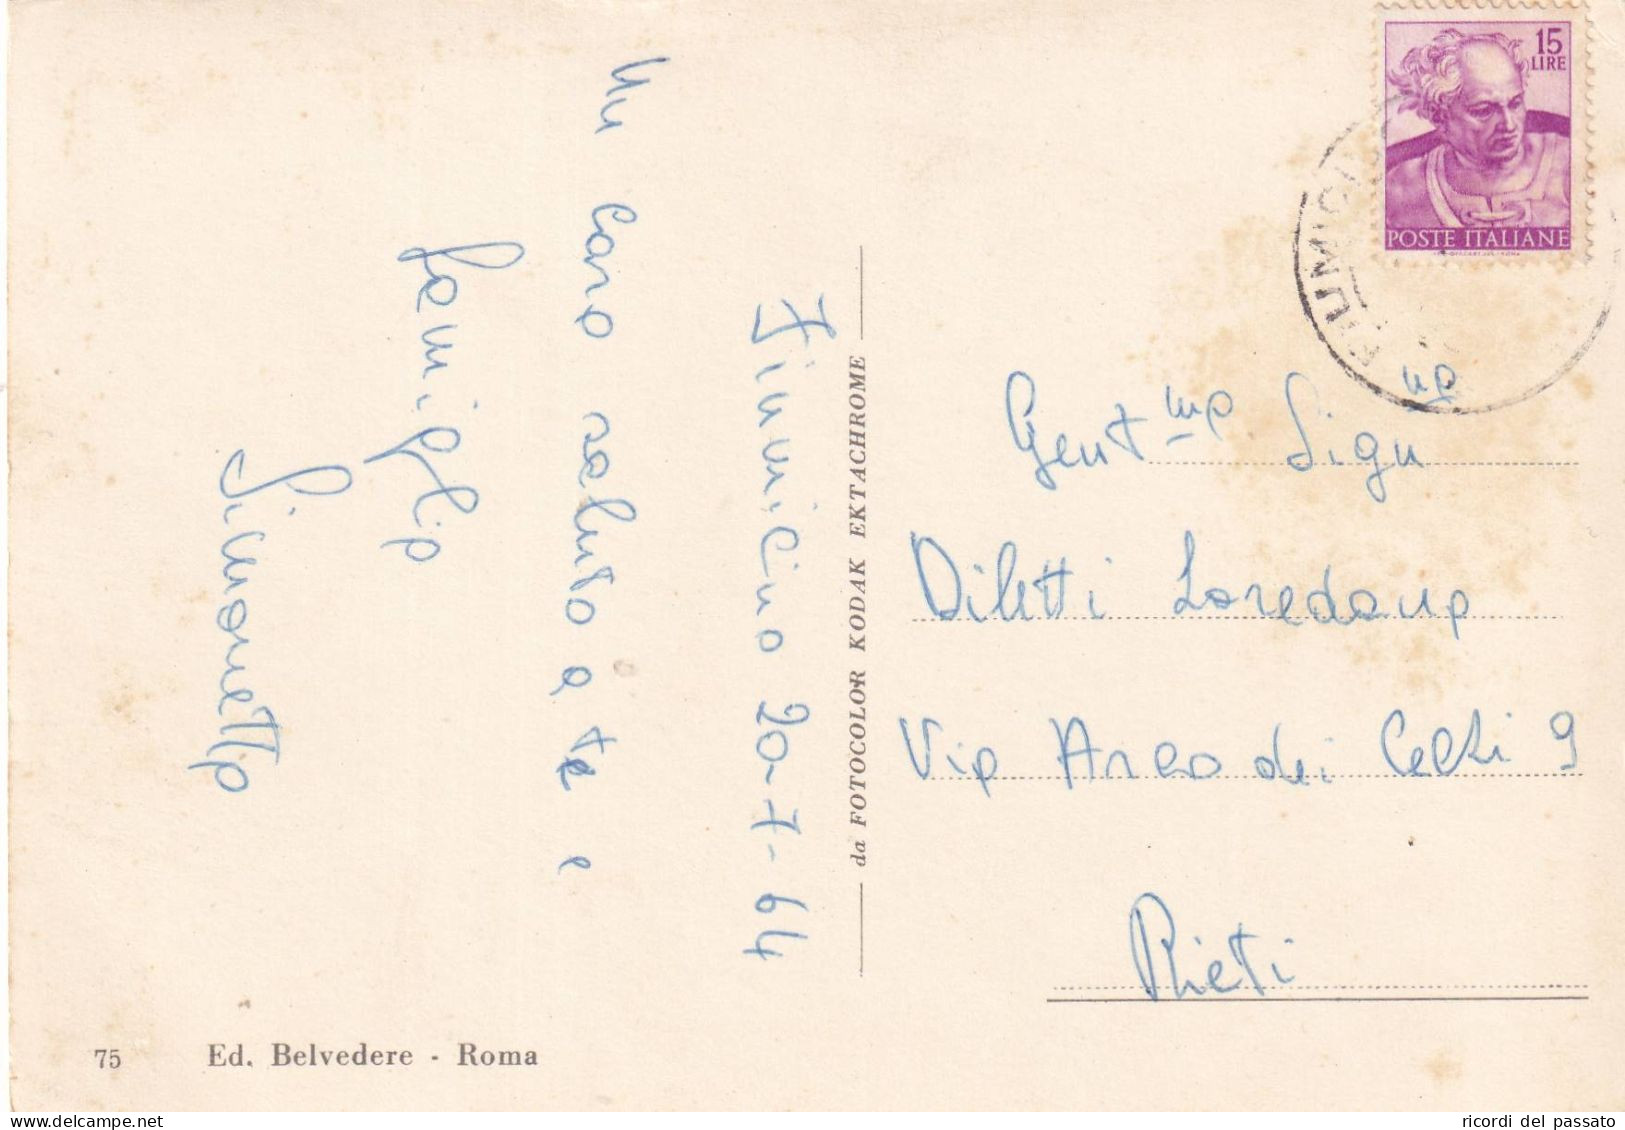 15
LIRE
POSTE ITALIANE
FIUMICINO
Fiumicino 20-7-64
Un caro saluto a te e
famiglia
Simonetta
da FOTOCOLOR KODAK EKTACHROME
Gent.ma Sign.na
Diletti Loredana
Via Arco dei Cechi 9
Rieti
75 Ed. Belvedere - Roma
ricordi del passato